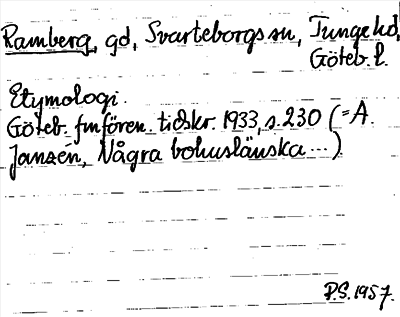 Ramberg, gd, Svarteborgs sn, Tunge hd,
Göteb. l.
Etymologi.
Göteb. fmfören. tidskr. 1933, s. 230 (=A.
Janzén, Några bohuslänska ...)
P.S. 1957.